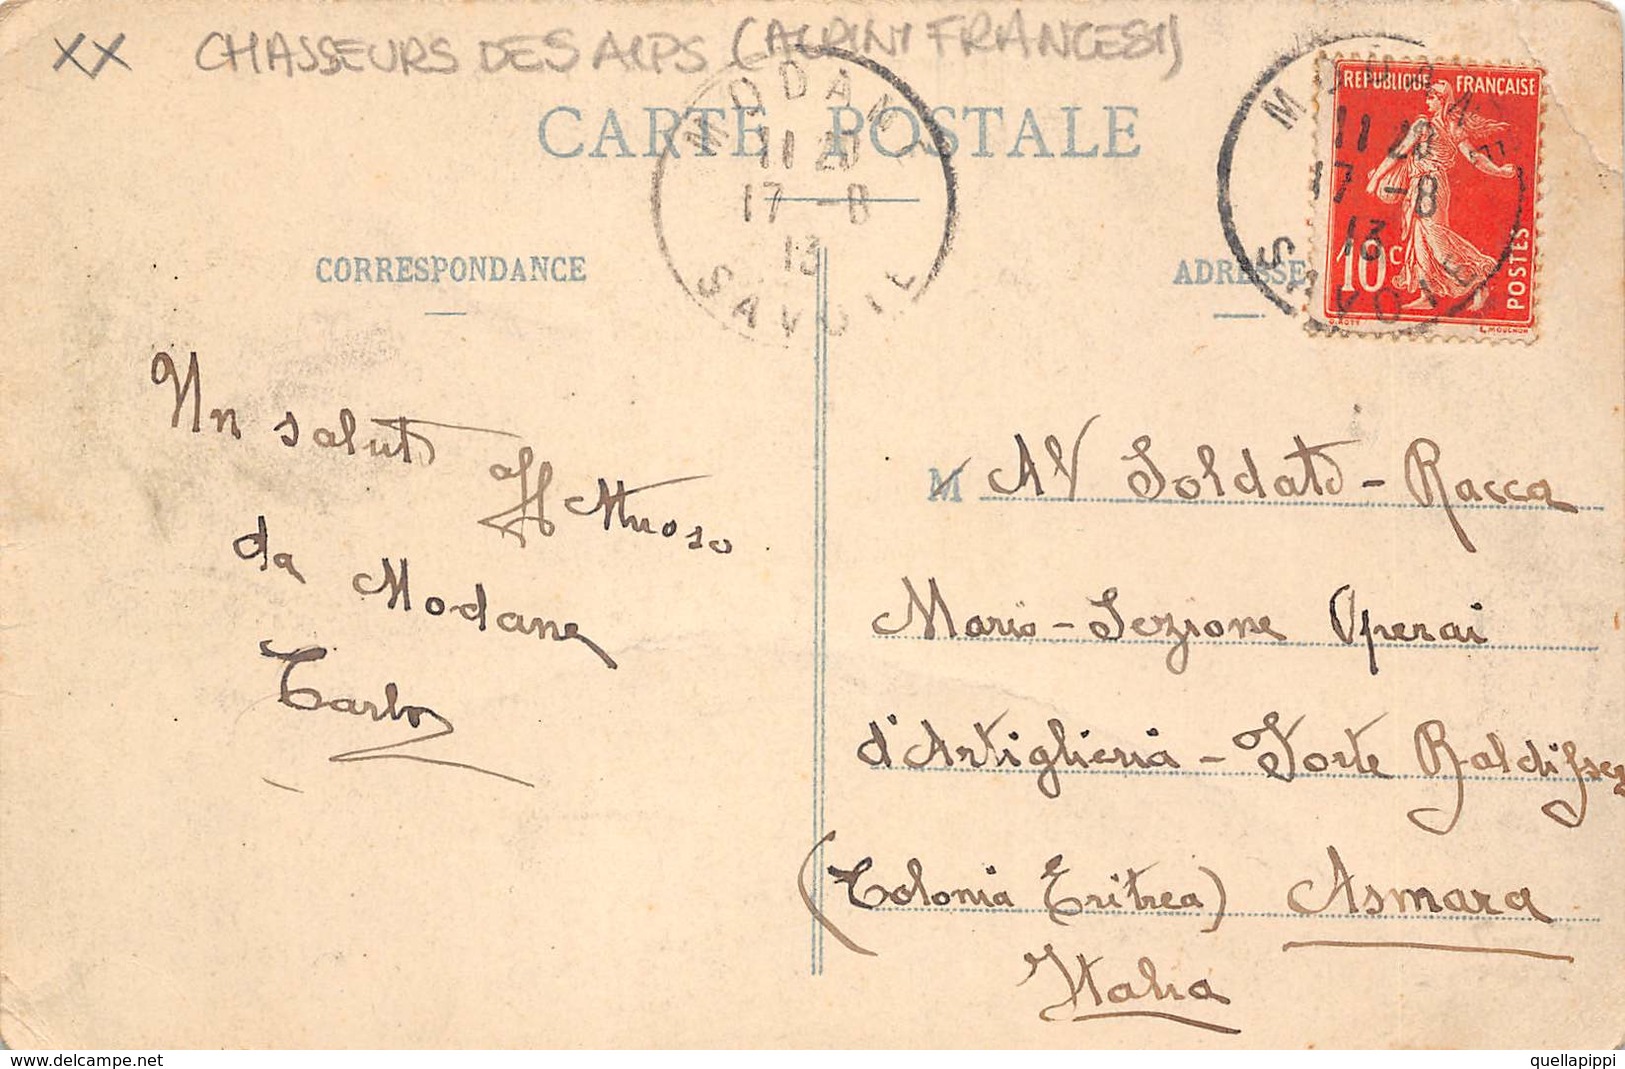 XX CHASSEURS DES ALPS (ALPINI FRANCESI)
CARTE POSTALE
MODANE
11 20
17 -8
13
SAVOIE
MODANE
11 20
17 -8
13
SAVOIE
REPUBLIQUE FRANÇAISE
10c
POSTES
O. ROTY
L. MOUCHON
CORRESPONDANCE
ADRESSE
Un saluto Affettuoso
da Modane
Carlo
M Al Soldato - Racca
Mario - Sezione Operai
d'Artiglieria - Forte Baldissera
(Colonia Eritrea) Asmara
Italia
www.delcampe.net
quellapippi